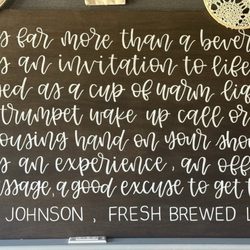 far more than a bever
an invitation to life
as a cup of warm liq
trumpet wake up call or
ousing hand on your shou
an experience, an off
ssage, a good excuse to get t
JOHNSON, FRESH BREWED L